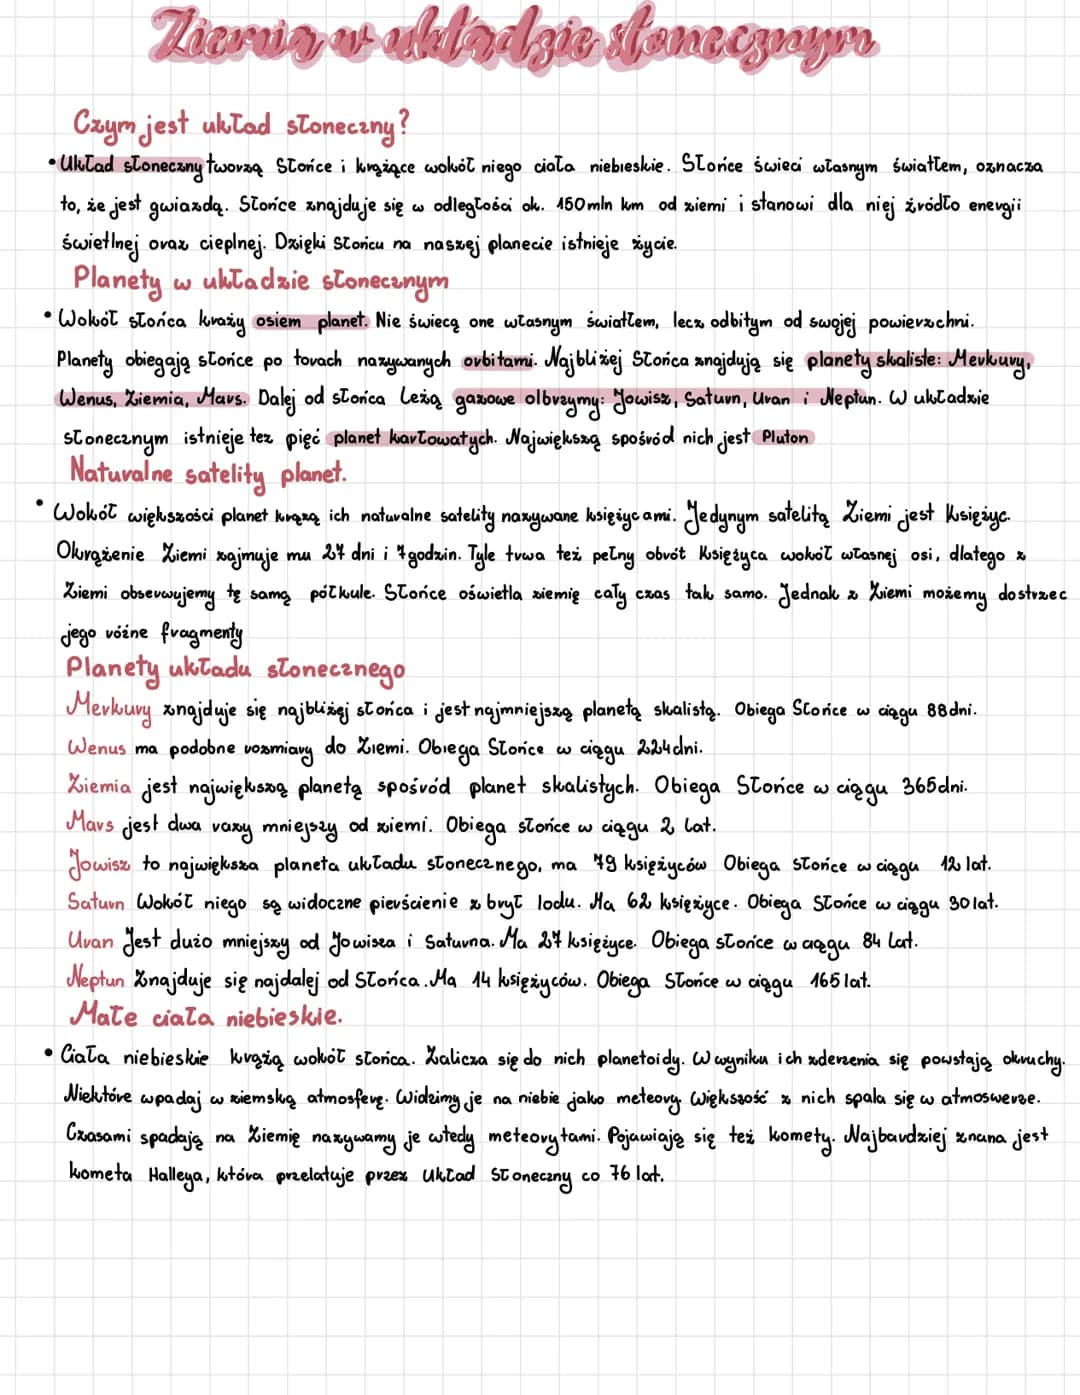 Ziemia w układzie słonecznym
Czym jest układ słoneczny?
• Układ słoneczny tworzą Słońce i krążące wokół niego ciała niebieskie. Słońce świeci własnym światłem, oznacza
to, że jest gwiazdą. Słońce znajduje się w odległości ok. 150mln km od ziemi i stanowi dla niej źródło energii
świetlnej oraz cieplnej. Dzięki Słońcu na naszej planecie istnieje życie.
Planety w układzie słonecznym
• Wokół słońca kraży osiem planet. Nie świecą one własnym światłem, lecz odbitym od swojej powierzchni.
Planety obiegają słońce po torach nazywanych orbitami. Najbliżej Słońca znajdują się planety skaliste: Merkury,
Wenus, Ziemia, Mars. Dalej od słońca leżą gazowe olbrzymy: Jowisz, Saturn, Uran i Neptun. W układzie
słonecznym istnieje tez pięć planet karłowatych. Największą spośród nich jest Pluton
Naturalne satelity planet.
• Wokół większości planet krążą ich naturalne satelity nazywane księżycami. Jedynym satelitą Ziemi jest Księżyc.
Okrążenie Ziemi zajmuje mu 27 dni i 7 godzin. Tyle trwa też pełny obrót Księżyca wokół własnej osi, dlatego z
Ziemi obserwujemy tę samą półkule. Słońce oświetla ziemię cały czas tak samo. Jednak z Ziemi możemy dostrzec
jego różne fragmenty
Planety układu słonecznego
Merkury znajduje się najbliżej słońca i jest najmniejszą planetą skalistą. Obiega Słońce w ciągu 88 dni.
Wenus ma podobne rozmiary do Ziemi. Obiega Słońce w ciągu 224 dni.
Ziemia jest największą planetą spośród planet skalistych. Obiega Słońce w ciągu 365 dni.
Mars jest dwa razy mniejszy od ziemi. Obiega słońce w ciągu 2 lat.
Jowisz to największa planeta układu słonecznego, ma 79 księżyców Obiega słońce w ciągu 12 lat.
Saturn Wokół niego są widoczne pierścienie z brył lodu. Ma 62 księżyce. Obiega Słońce w ciągu 30 lat.
Uran Jest dużo mniejszy od Jowisza i Saturna. Ma 27 księżyce. Obiega słońce w ciągu 84 lat.
Neptun Znajduje się najdalej od Słońca. Ma 14 księżyców. Obiega Słońce w ciągu 165 lat.
Małe ciała niebieskie.
• Ciała niebieskie krążą wokół słońca. Zalicza się do nich planetoidy. W wyniku ich zderzenia się powstają okruchy.
Niektóre wpadaj w ziemską atmosferę. Widzimy je na niebie jako meteory. Większość z nich spala się w atmoswerze.
Czasami spadają na Ziemię nazywamy je wtedy meteorytami. Pojawiają się też komety. Najbardziej znana jest
kometa Halleya, która przelatuje przez Układ Słoneczny co 76 lat.